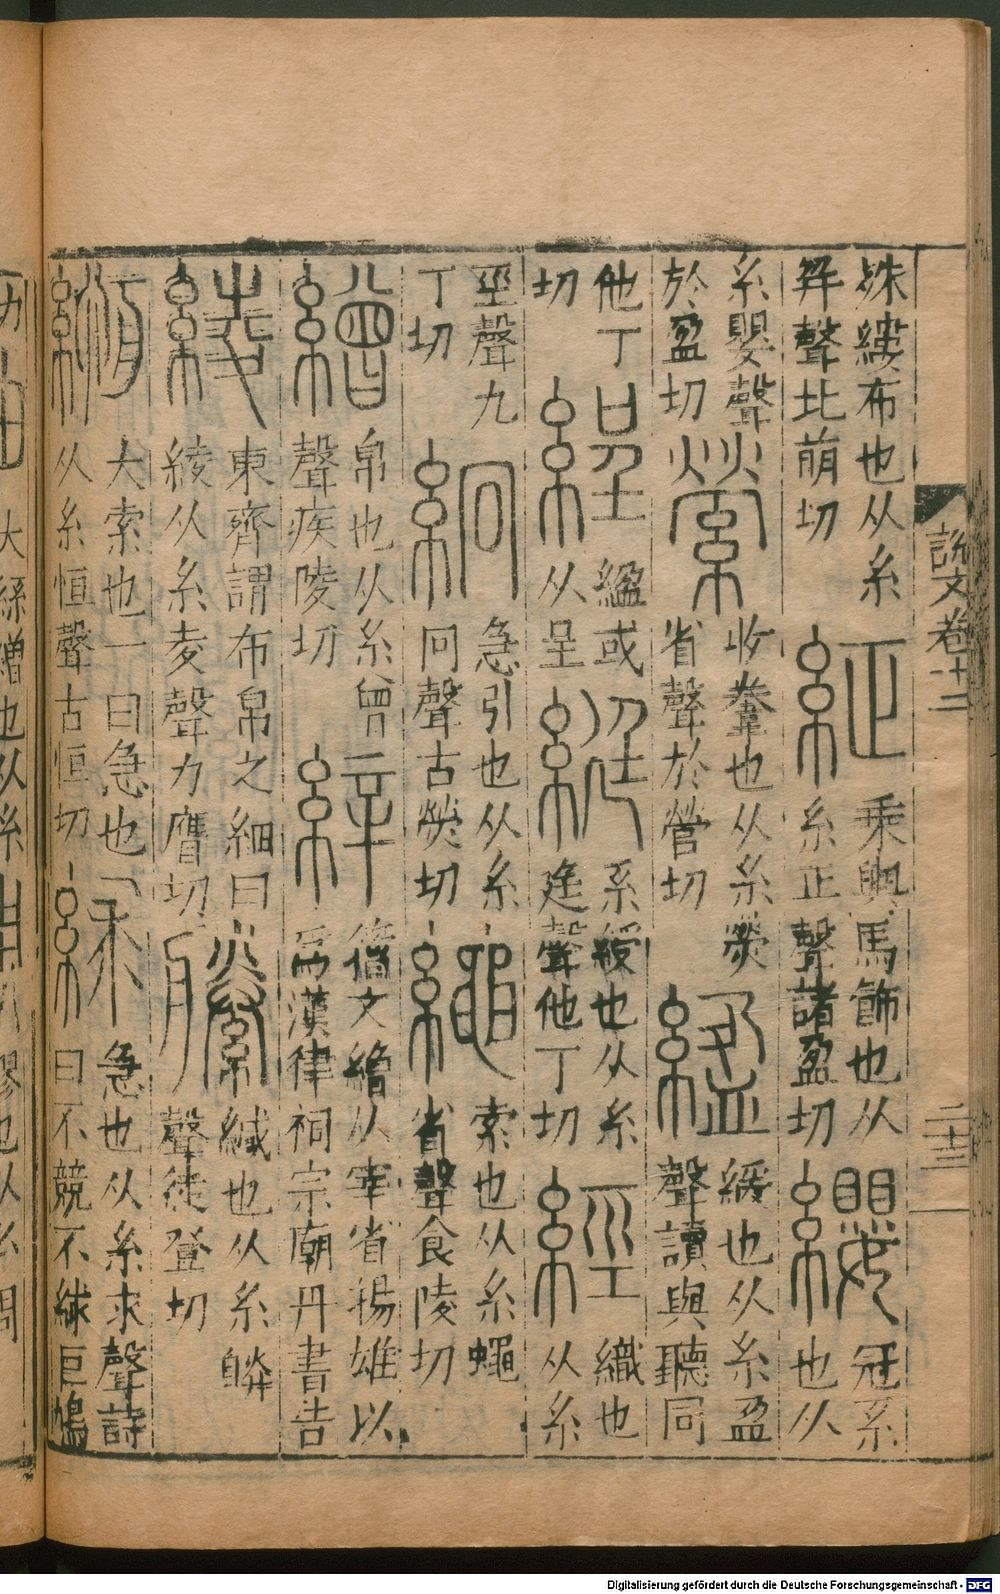 説文卷十二
二十三
殊縷布也从糸幷聲北萌切 䋊 乘輿馬飾也从糸正聲諸盈切 纓 冠系也从
糸嬰聲於盈切 縈 收韏也从糸熒省聲於營切 縕 緩也从糸盈聲讀與聽同
他丁切 綎 縕或从呈 綎 系綬也从糸廷聲他丁切 經 織也从糸
巠聲九丁切 絅 急引也从糸冋聲古熒切 繩 索也从糸蠅省聲食陵切
繒 帛也从糸曾聲疾陵切 縡 籒文繒从宰省揚雄以爲漢律祠宗廟丹書告
綾 東齊謂布帛之細曰綾从糸夌聲力膺切 縢 緘也从糸朕聲徒登切
緪 大索也一曰急也从糸恒聲古恒切 絿 急也从糸求聲詩曰不競不絿巨鳩
切 大絲繒也从糸 繆也从糸周
Digitalisierung gefördert durch die Deutsche Forschungsgemeinschaft - DFG